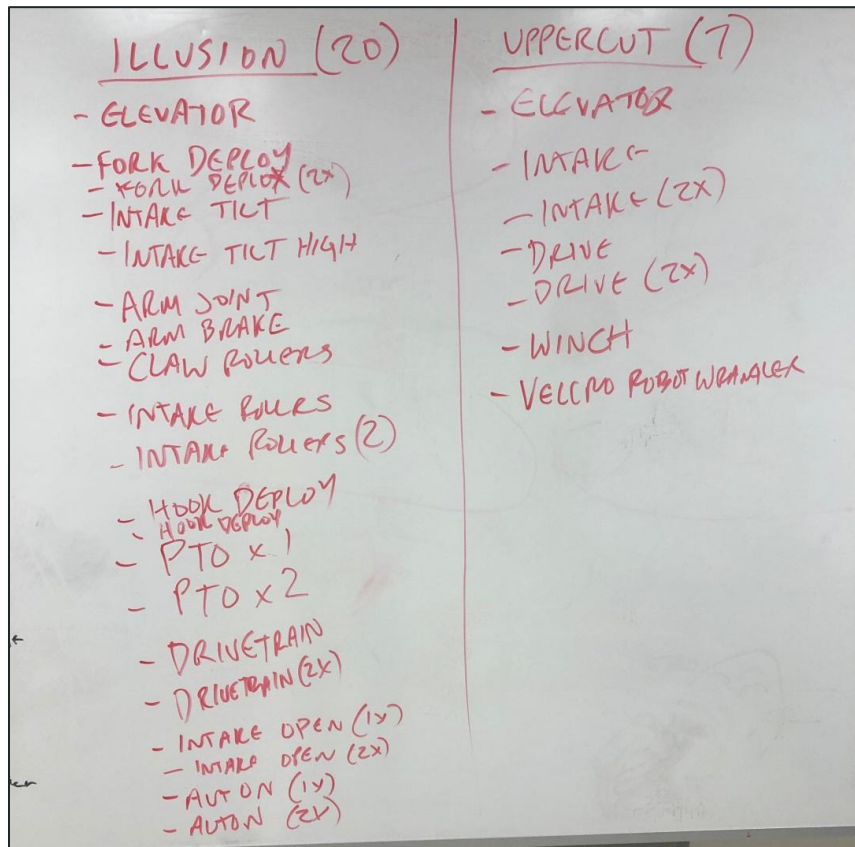 ILLUSION (20)
- ELEVATOR
- FORK DEPLOY
- FORK DEPLOY (2X)
- INTAKE TILT
- INTAKE TILT HIGH
- ARM JOINT
- ARM BRAKE
- CLAW ROLLERS
- INTAKE ROLLERS
- INTAKE ROLLERS (2)
- HOOK DEPLOY
- HOOK DEPLOY
- PTO x 1
- PTO x 2
- DRIVETRAIN
- DRIVETRAIN (2X)
- INTAKE OPEN (1X)
- INTAKE OPEN (2X)
- AUTON (1X)
- AUTON (2X)
UPPERCUT (7)
- ELEVATOR
- INTAKE
- INTAKE (2X)
- DRIVE
- DRIVE (2X)
- WINCH
- VELCRO ROBOT WRANGLER